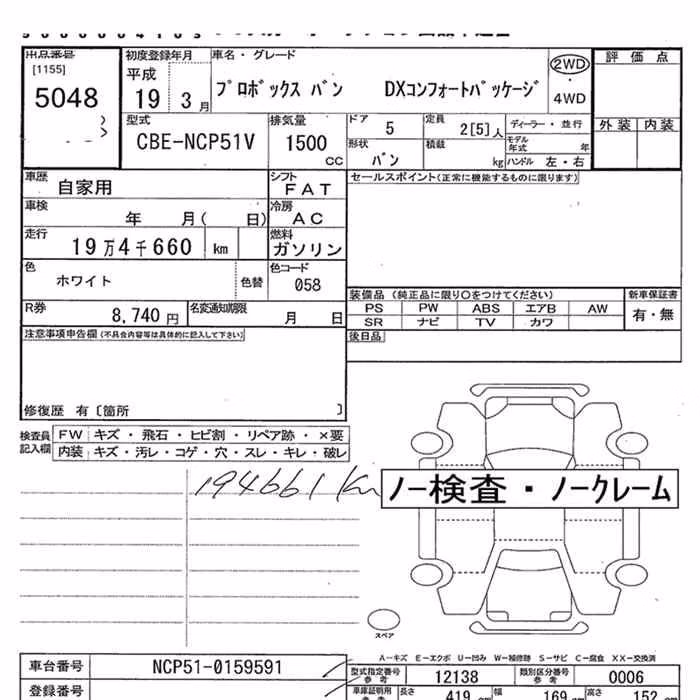 出品番号
[1155]
5048
初度登録年月
平成
19 3 月
車名・グレード
プロボックス バン DXコンフォートパッケージ
2WD
・
4WD
評価点
外装 内装
型式
CBE-NCP51V
排気量
1500
CC
ドア
5
定員
2[5]人
ディーラー・並行
形状
バン
積載
kg
モデル年式
年
ハンドル 左・右
車歴
自家用
シフト
FAT
セールスポイント(正常に機能するものに限ります)
車検
年 月( 日)
冷房
AC
走行
19万4千660 km
燃料
ガソリン
色
ホワイト
色替
色コード
058
装備品 (純正品に限り○をつけてください)
新車保証書
PS PW ABS エアB AW
有・無
SR ナビ TV カワ
R券
8,740 円
名変通知期限
月 日
後日品
注意事項申告欄(不具合内容等は具体的に記入して下さい)
修復歴 有〔箇所 〕
検査員記入欄
FW キズ・飛石・ヒビ割・リペア跡・×要
内装 キズ・汚レ・コゲ・穴・スレ・キレ・破レ
194661km
ノー検査・ノークレーム
スペア
A―キズ E―エクボ U―凹み W―補修跡 S―サビ C―腐食 XX―交換済
車台番号
NCP51-0159591
型式指定番号参考
12138
類別区分番号参考
0006
登録番号
車庫証明用
長さ
419
幅
169
高さ
152